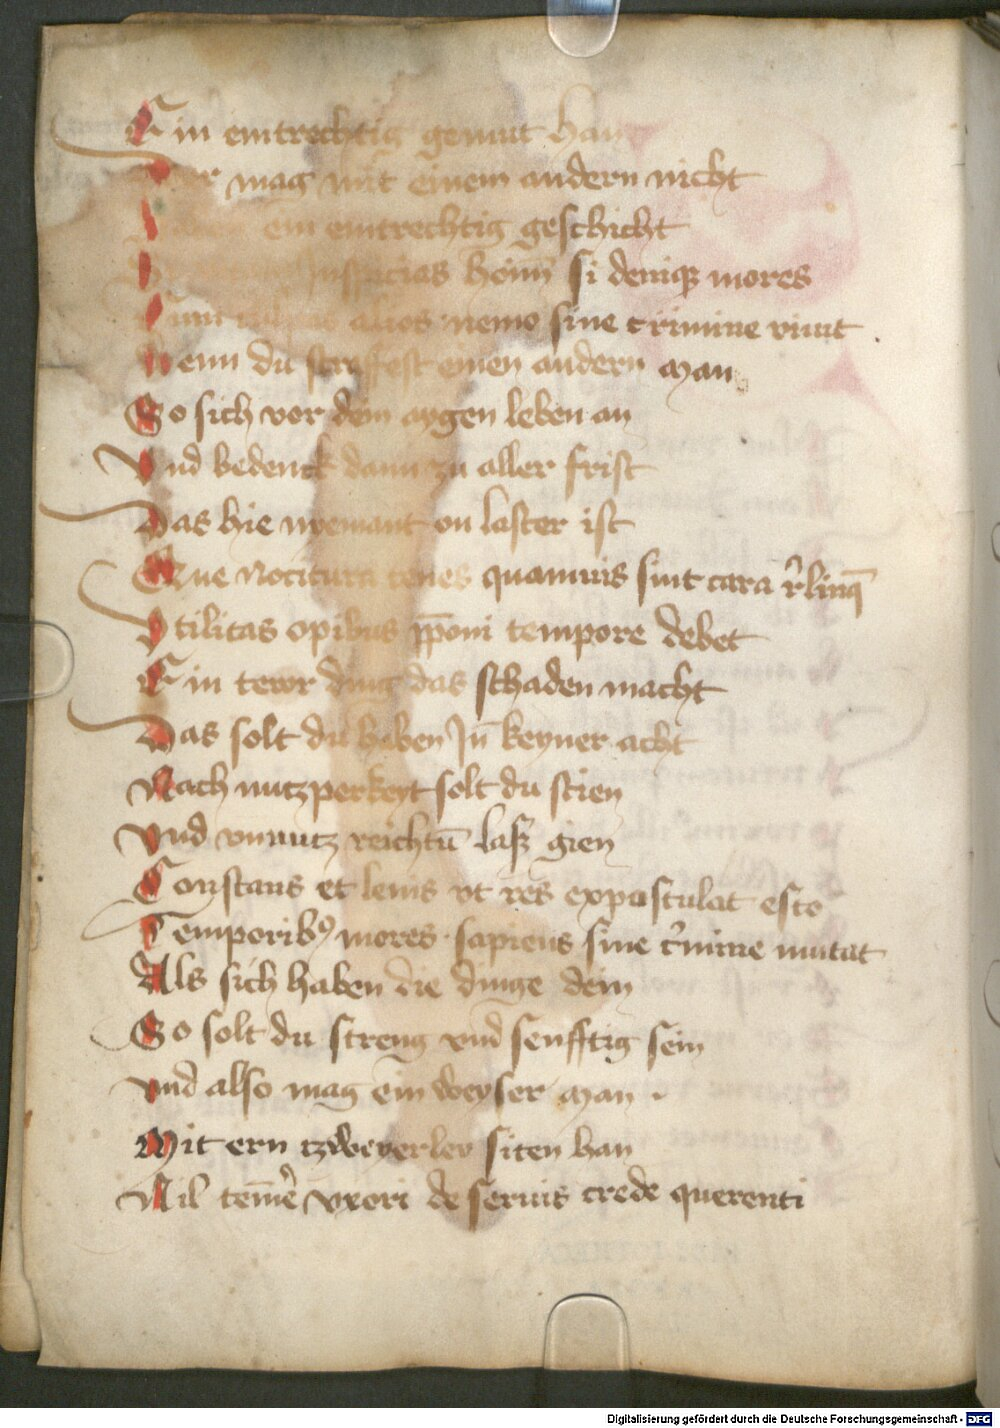 Ein eintrechtig gemut han
Der mag mit einem andern nicht
ein eintrechtig geschicht
inspicias hoīm si deniqꝫ mores
alios nemo sine crimine viuit
Wenn du straffest einen andern man
So sich vor dein aygen leben an
Vnd bedenck dann zu aller frist
Das hie nyemant on laster ist
Que nocitura tenes quamuis sint cara r̄linqͣ
Vtilitas opibus p̄poni tempore debet
Ein tewr ding das schaden macht
Das solt du haben Jn̄ keyner acht
Nach nutzperkeyt solt du stien
Vnd vnnutz reichtū lasz gien
Constans et lenis vt res expostulat esto
Temporibꝰ mores sapiens sine c̓mine mutat
Als sich haben die dinge dein
So solt du streng vnd senfftig sein
Vnd also mag ein weyser man
Mit ern tzweyerley siten han
Nil tem̄e vxori de seruis crede querenti
Digitalisierung gefördert durch die Deutsche Forschungsgemeinschaft - DFG